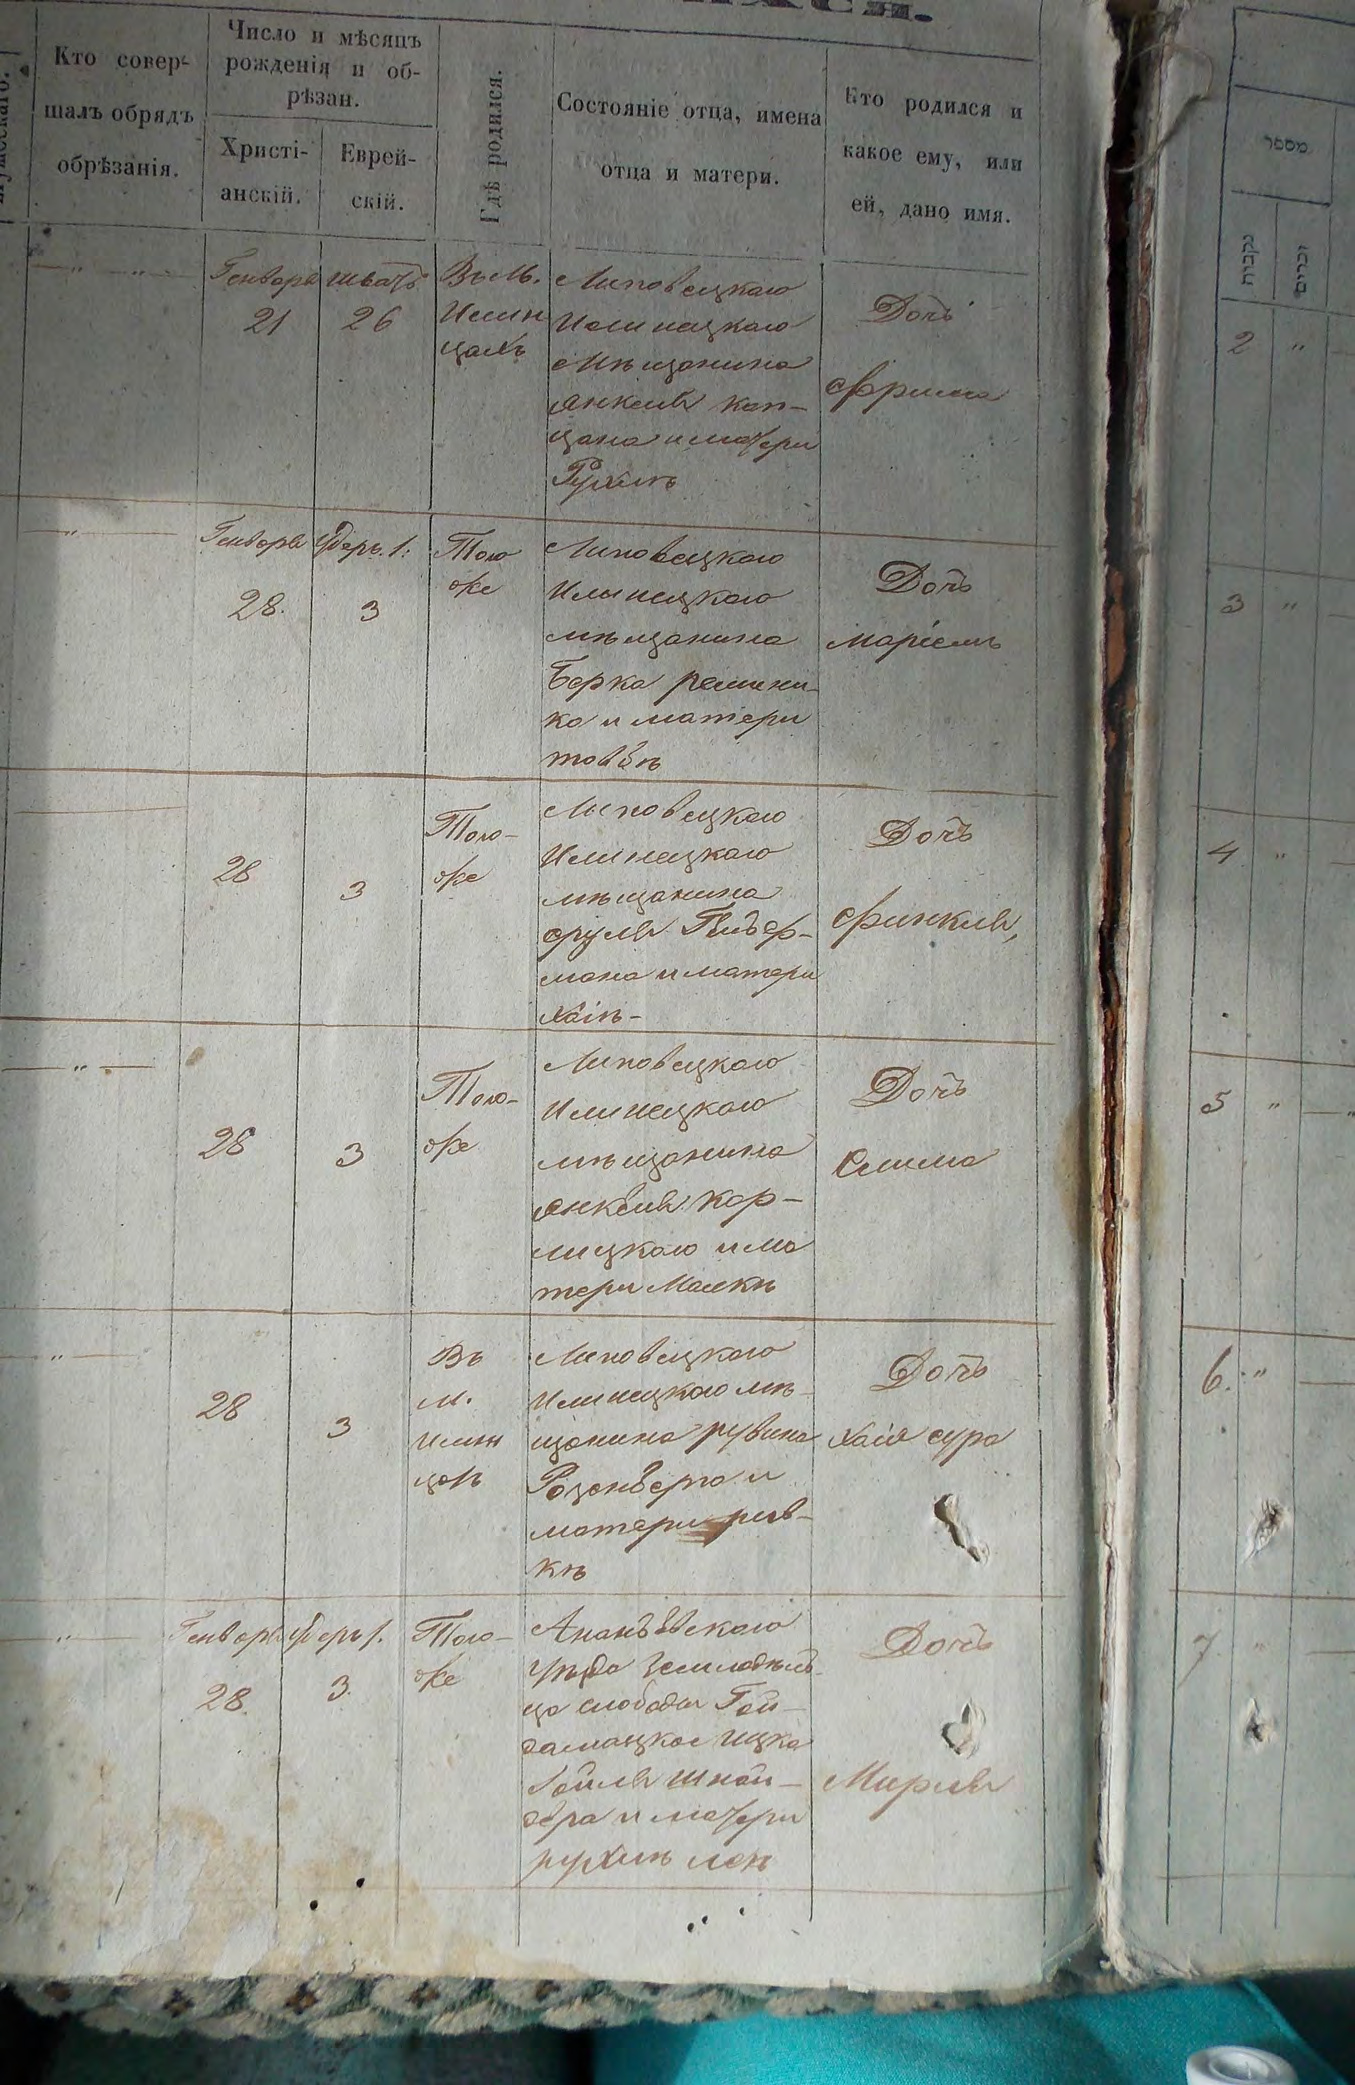 Кто совер-
шалъ обрядъ
обрѣзанія.
Число и мѣсяцъ
рожденія и об-
рѣзан.
Христі-
анскій.
Еврей-
скій.
Гдѣ родился.
Состояніе отца, имена
отца и матери.
Кто родился и
какое ему, или
ей, дано имя.
Генваря
21
шватъ
26
Въ м.
Илин
цахъ
Липовецкаго
Илинецкаго
мѣщанина
Янкеля Кап-
цана и матери
Рухли
Дочь
Фрима
Генваря
28.
3
Того
же
Липовецкаго
Илинецкаго
мѣщанина
Берка
ка и матери
товбѣ
Дочь
маріемъ
28
3
Того-
же
Липовецкаго
Илинецкаго
мѣщанина
сруля
мана и матери
Хаіѣ-
Дочь
Финкля,
28
3
Того-
же
Липовецкаго
Илинецкаго
мѣщанина
Янкеля Кор-
лицкаго и ма
тери Малкѣ
Дочь
Слима
28
3
Въ
м.
Илин
цах
Липовецкаго
Илинецкаго мѣ-
щанина рувина
Розенберга и
матери рив-
кѣ
Дочь
Хаія сура
Генваря
28.
3.
Того-
же
Ананьевскаго
уѣзда земледѣль-
ца слободы Гай-
дамацкое Ицка
Шнай-
дера и матери
рухли леи
Дочь
Мирля
מספר
נקבות
זכרים
2 "
3 "
4 "
5 "
6. "
7. "